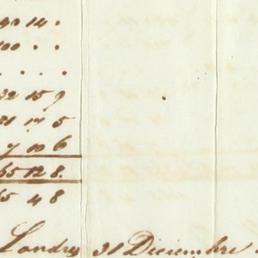 90 14 .
100 . .
. . .
32 15 9
31 17 5
7 10 6
65 12 8.
65 4 8
Londres 31 Diciembre